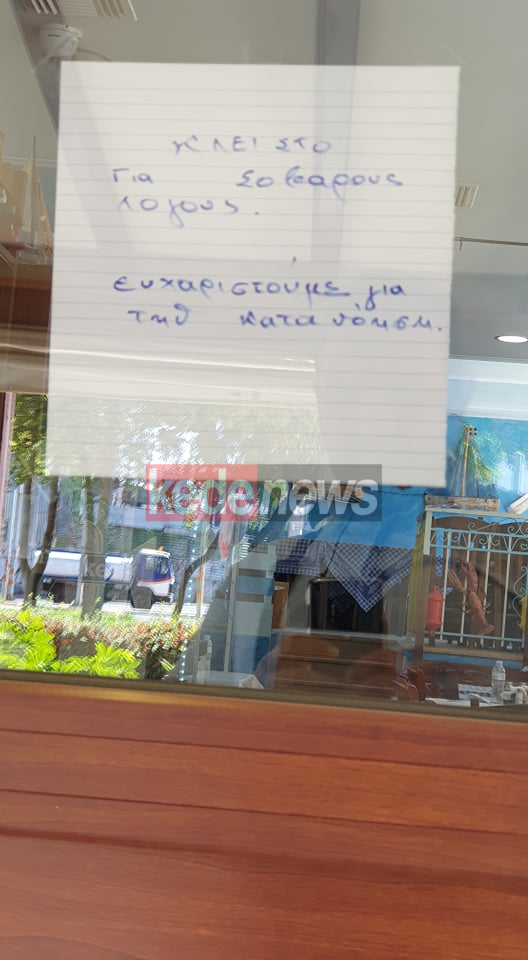 ΚΛΕΙΣΤΟ
Για Σοβαρους
λογους.
ευχαριστούμε για
την κατανόηση.
kedenews